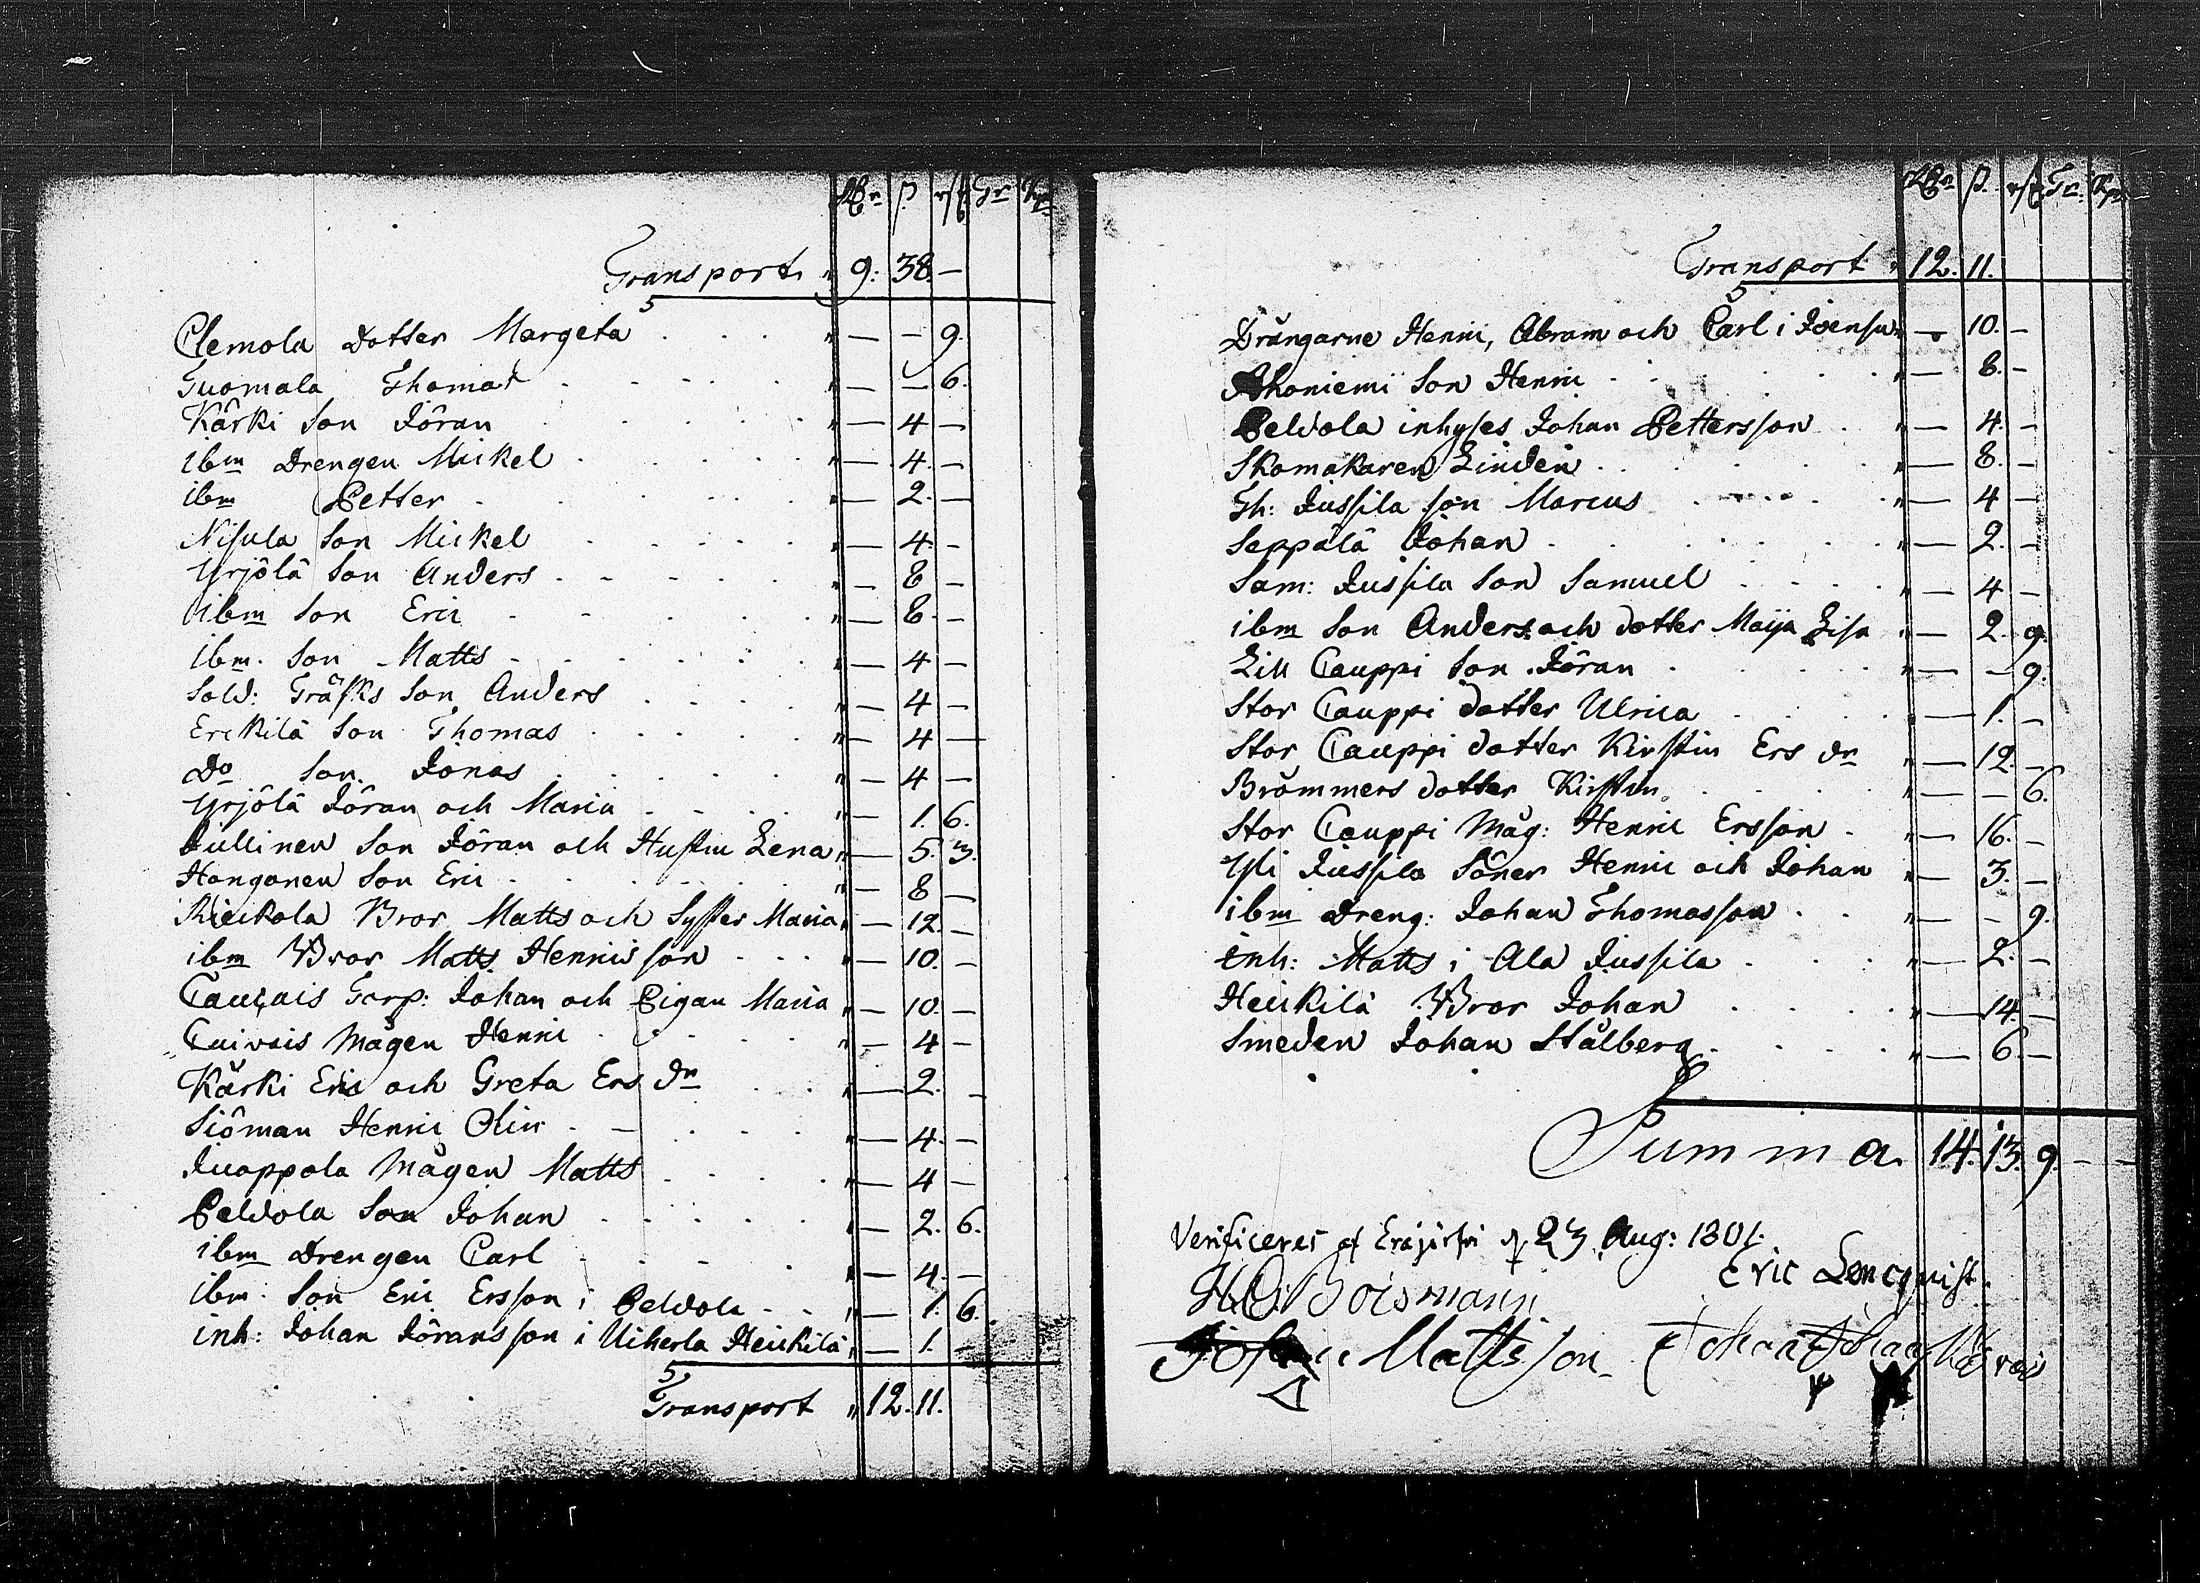 Rdr ß. r/st Gr Kpr
Transport " 9: 38. —
Clemola dotter Margeta " — — 9.
Tuomala Thomas " — — 6.
Kärki Son Jöran " — 4 —
ibm Drengen Mickel " — 4. —
ibm Petter " — 2. —
Nisula Son Mickel " — 4. —
Yrjölä Son Anders " — 8 —
ibm Son Eric " — 8. —
ibm. Son Matts " — 4 —
Sold: Gräsks Son Anders " — 4 —
Erckilä Son Thomas " — 4 —
Do Son Jonas " — 4 —
Yrjölä Jöran och Maria " — 1. 6.
Jullinen Son Jöran och Hustru Lena " — 5. 3.
Hangonen Son Eric " — 8 —
Rieckola Bror Matts och Syster Maria " — 12. —
ibm Bror Matts Hennisson " — 10. —
Torp: Johan och Pigan Maria " — 10. —
Cuivais Mågen Henric " — 4 —
Kärki Eric och Greta Ers dr " — 2. —
Siöman Henric Olin " — 4. —
Juoppola Mågen Matts " — 4 —
Peldola Son Johan " — 2. 6.
ibm Drengen Carl " — 4. —
ibm. Son Eric Ersson i Peldola " — 1. 6.
inh: Johan Jöransson i Uiherla Heickilä " — 1. —
Transport " 12. 11.
Rdr ß. r/st Gr: Kpr
Transport " 12. 11.
Drängarne Henric, Abram och Carl i Joensu " — 10. —
Ahoniemi Son Henric " — 8. —
Peldola inhyses Johan Pettersson " — 4. —
Skomakaren Linden " — 8. —
Th: Jussila son Marcus " — 4 —
Seppälä Johan " — 2. —
Sam: Jussila Son Samuel " — 4 —
ibm Son Anders och dotter Maija Lisa " — 2. 9.
Lill Cauppi Son Jöran " — — 9.
Stor Cauppi dotter Ulrica " — 1. —
Stor Cauppi dotter Kirstin Ers dr " — 12. —
Brommers dotter Kirstin " — — 6.
Stor Cauppi Måg: Henric Ersson " — 16. —
Yli Jussila Söner Henric och Johan " — 3. —
ibm Dreng: Johan Thomasson " — — 9.
inh: Matts i Ala Jussila " — 2. —
Heickilä Bror Johan " — 14. —
Smeden Johan Stålberg " — 6. —
Summa 14. 13. 9. — —
Verificeres af Eräjärfvi d 23 Aug: 1801.
Eric Lencqvist.
Boismann
Johan Mattsson
Johan